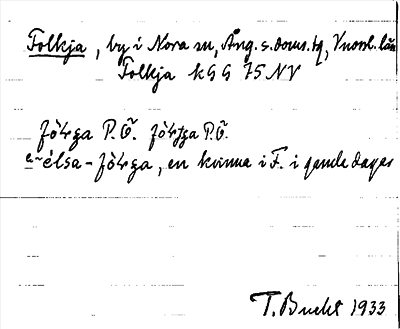 Folkja, by i Nora sn, Ång. s. doms. tg, Vnorrl. län
Folkja KGG 75 NV
fö́rga P.Ö. fö́rga P.Ö.
élsa-fö́rga, en kvinna i F. i gamla dagar
T. Bucht 1933